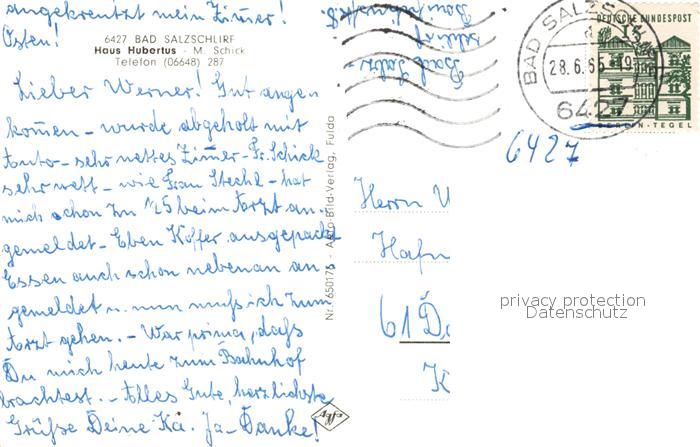 angekreuzt mein Zimmer!
Osten!
6427 BAD SALZSCHLIRF
Haus Hubertus - M. Schick
Telefon (06648) 287
Lieber Werner! Gut angen
kommen - wurde abgeholt mit
Auto - sehr nettes Zimmer - Fr. Schick
sehr nett - wie Frau Stechl - hat
mich schon zm 1/25 beim Arzt an-
gemeldet - Eben Koffer ausgepackt
Essen auch schon nebenan an-
gemeldet u. nun muß ich zum
Arzt gehen. - War prima, daß
Du mich heute zum Bahnhof
brachtest. - Alles Gute, herzlichste
Grüße Deine Kä. Ja - Danke!
Nr. 650176 - Auto-Bild-Verlag, Fulda
Bad Salz-
schlirf
DEUTSCHE BUNDESPOST
15
BERLIN-TEGEL
BAD SALZSCH
28.6.66-19
6427
6427
Herrn W
Hafn
61 Da
K
privacy protection
Datenschutz